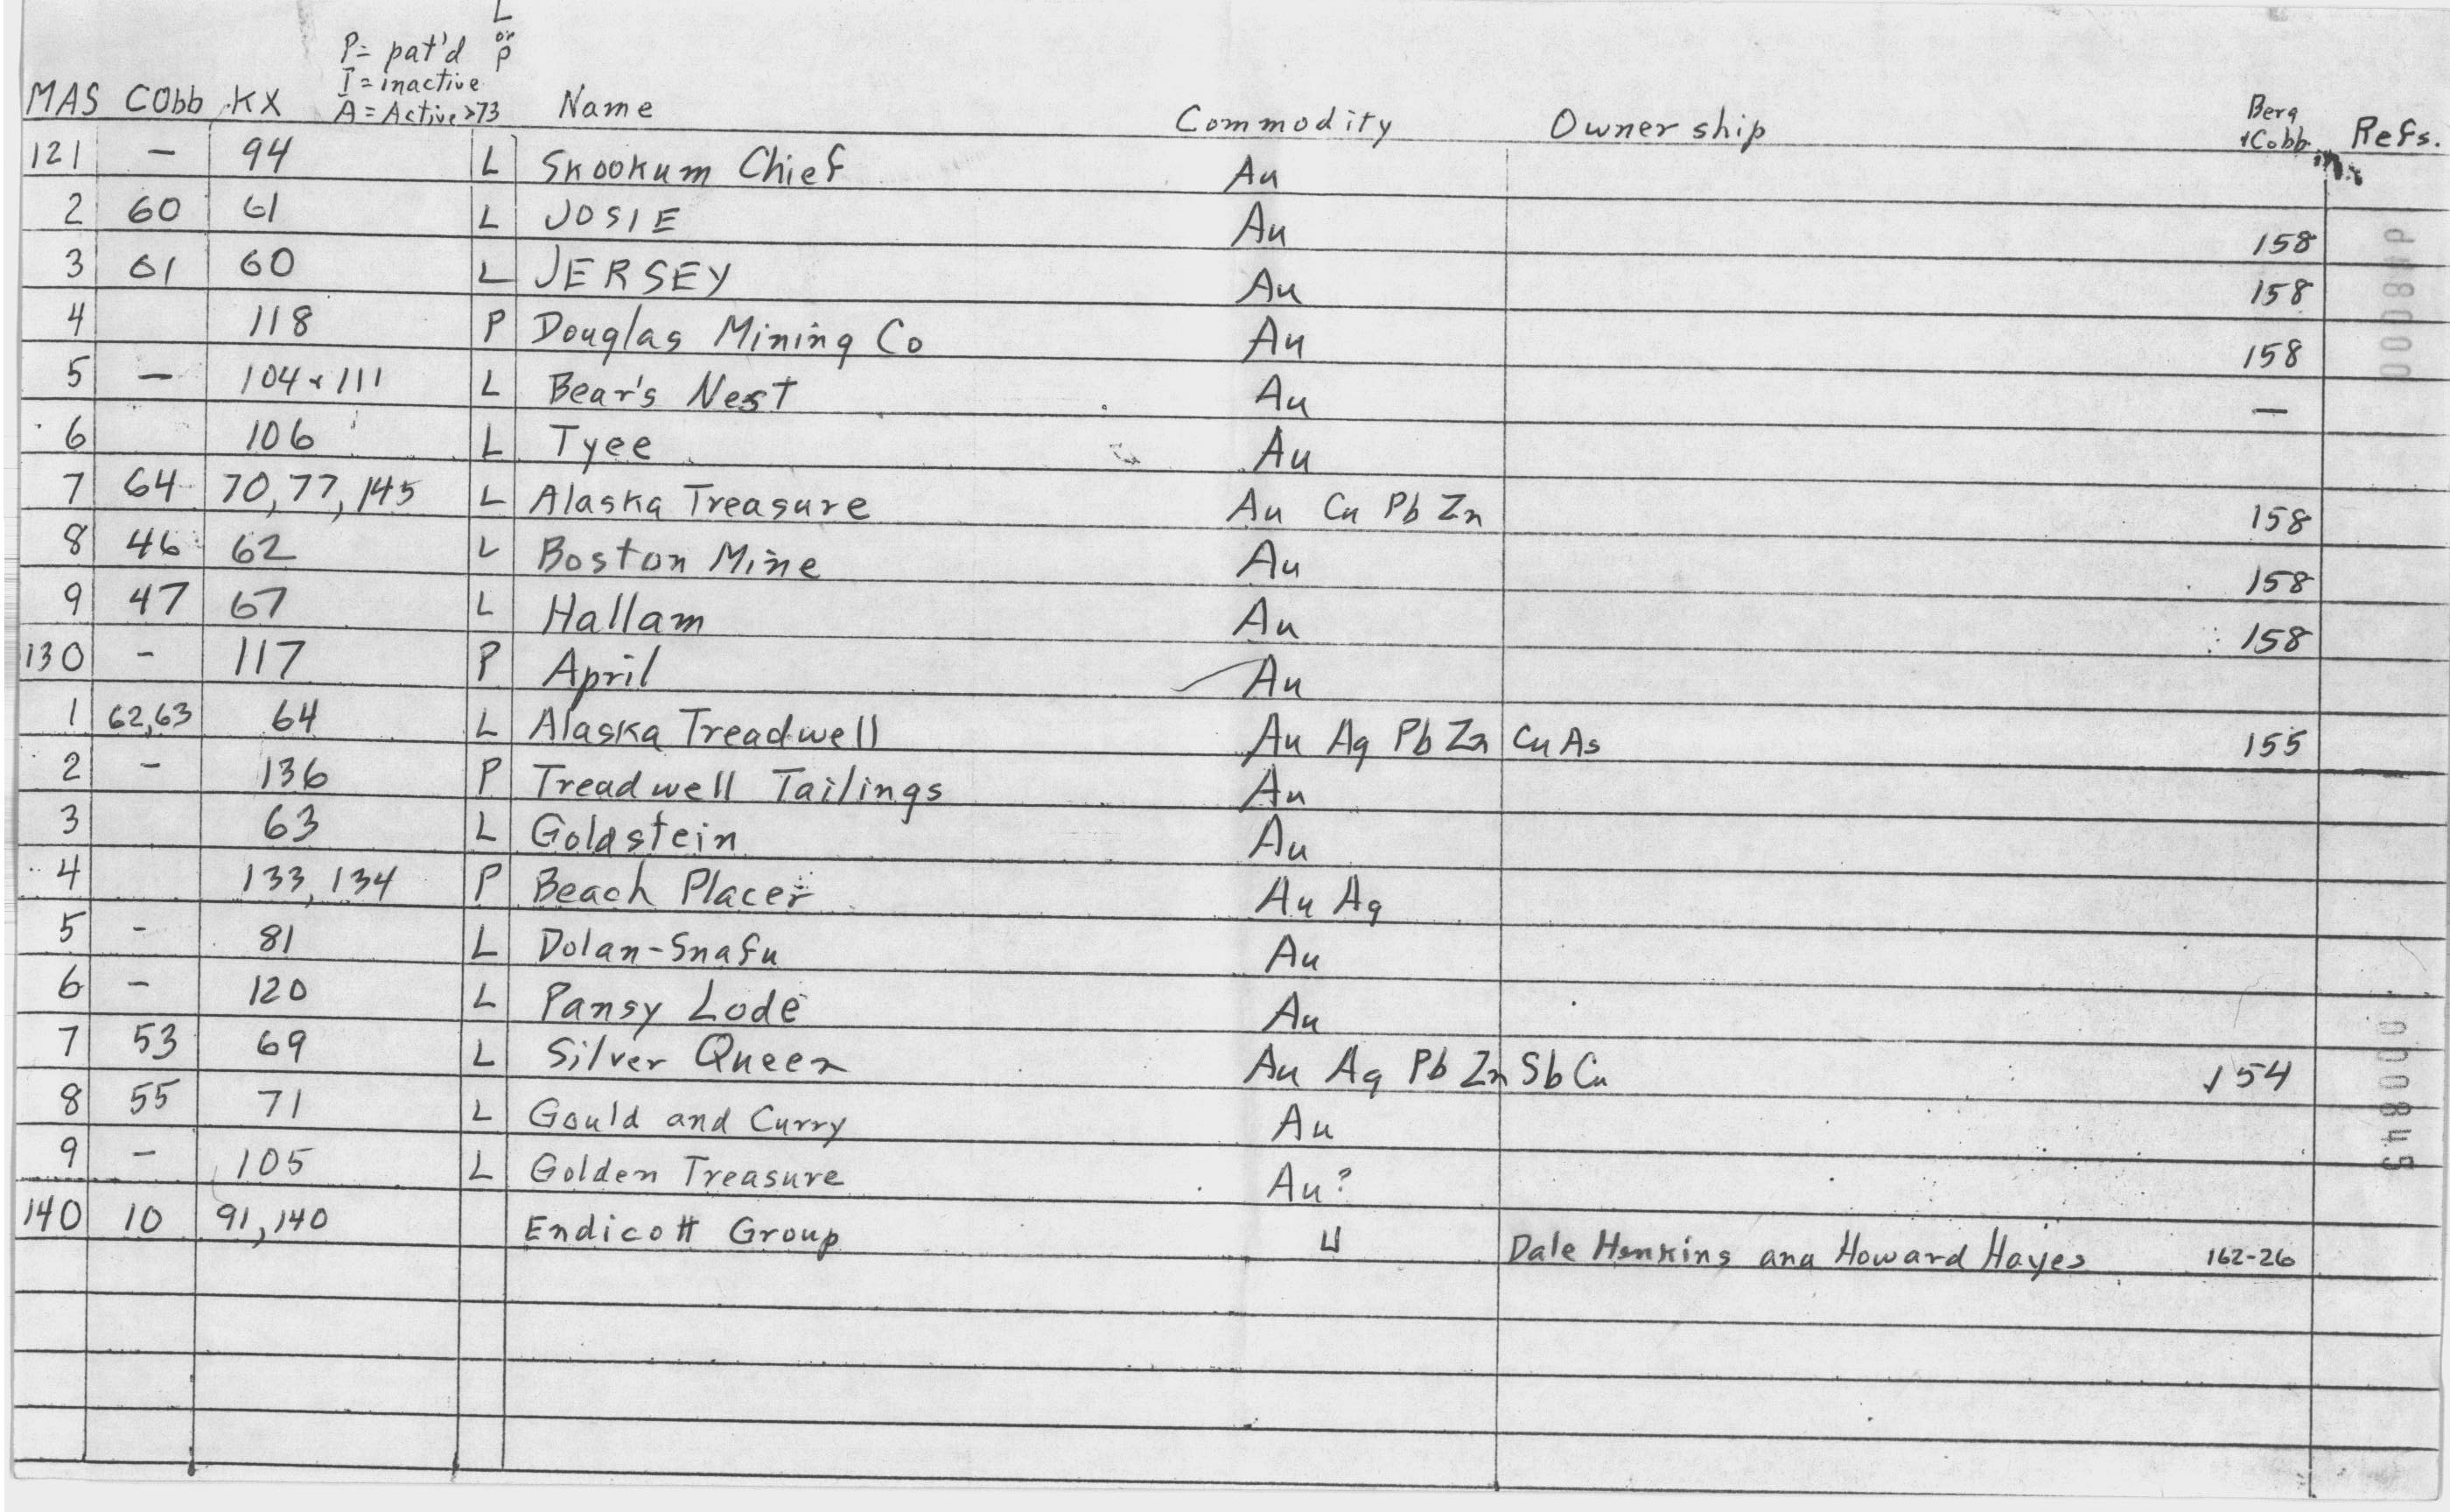 L
or
P
P = pat'd
I = inactive
A = Active >73
MAS Cobb KX Name Commodity Ownership Berg + Cobb Refs.
121 – 94 L Skookum Chief Au
2 60 61 L JOSIE Au 158
3 61 60 L JERSEY Au 158
4 118 P Douglas Mining Co Au 158
5 – 104 + 111 L Bear's Nest Au —
6 106 L Tyee Au
7 64 70, 77, 145 L Alaska Treasure Au Cu Pb Zn 158
8 46 62 L Boston Mine Au 158
9 47 67 L Hallam Au 158
130 - 117 P April Au
1 62,63 64 L Alaska Treadwell Au Ag Pb Zn Cu As 155
2 - 136 P Treadwell Tailings Au
3 63 L Goldstein Au
4 133, 134 P Beach Placer Au Ag
5 - 81 L Dolan-Snafu Au
6 – 120 L Pansy Lode Au
7 53 69 L Silver Queen Au Ag Pb Zn Sb Cu 154
8 55 71 L Gould and Curry Au
9 – 105 L Golden Treasure Au?
140 10 91, 140 Endicott Group U Dale Henkins and Howard Hayes 162-26
000844
000845